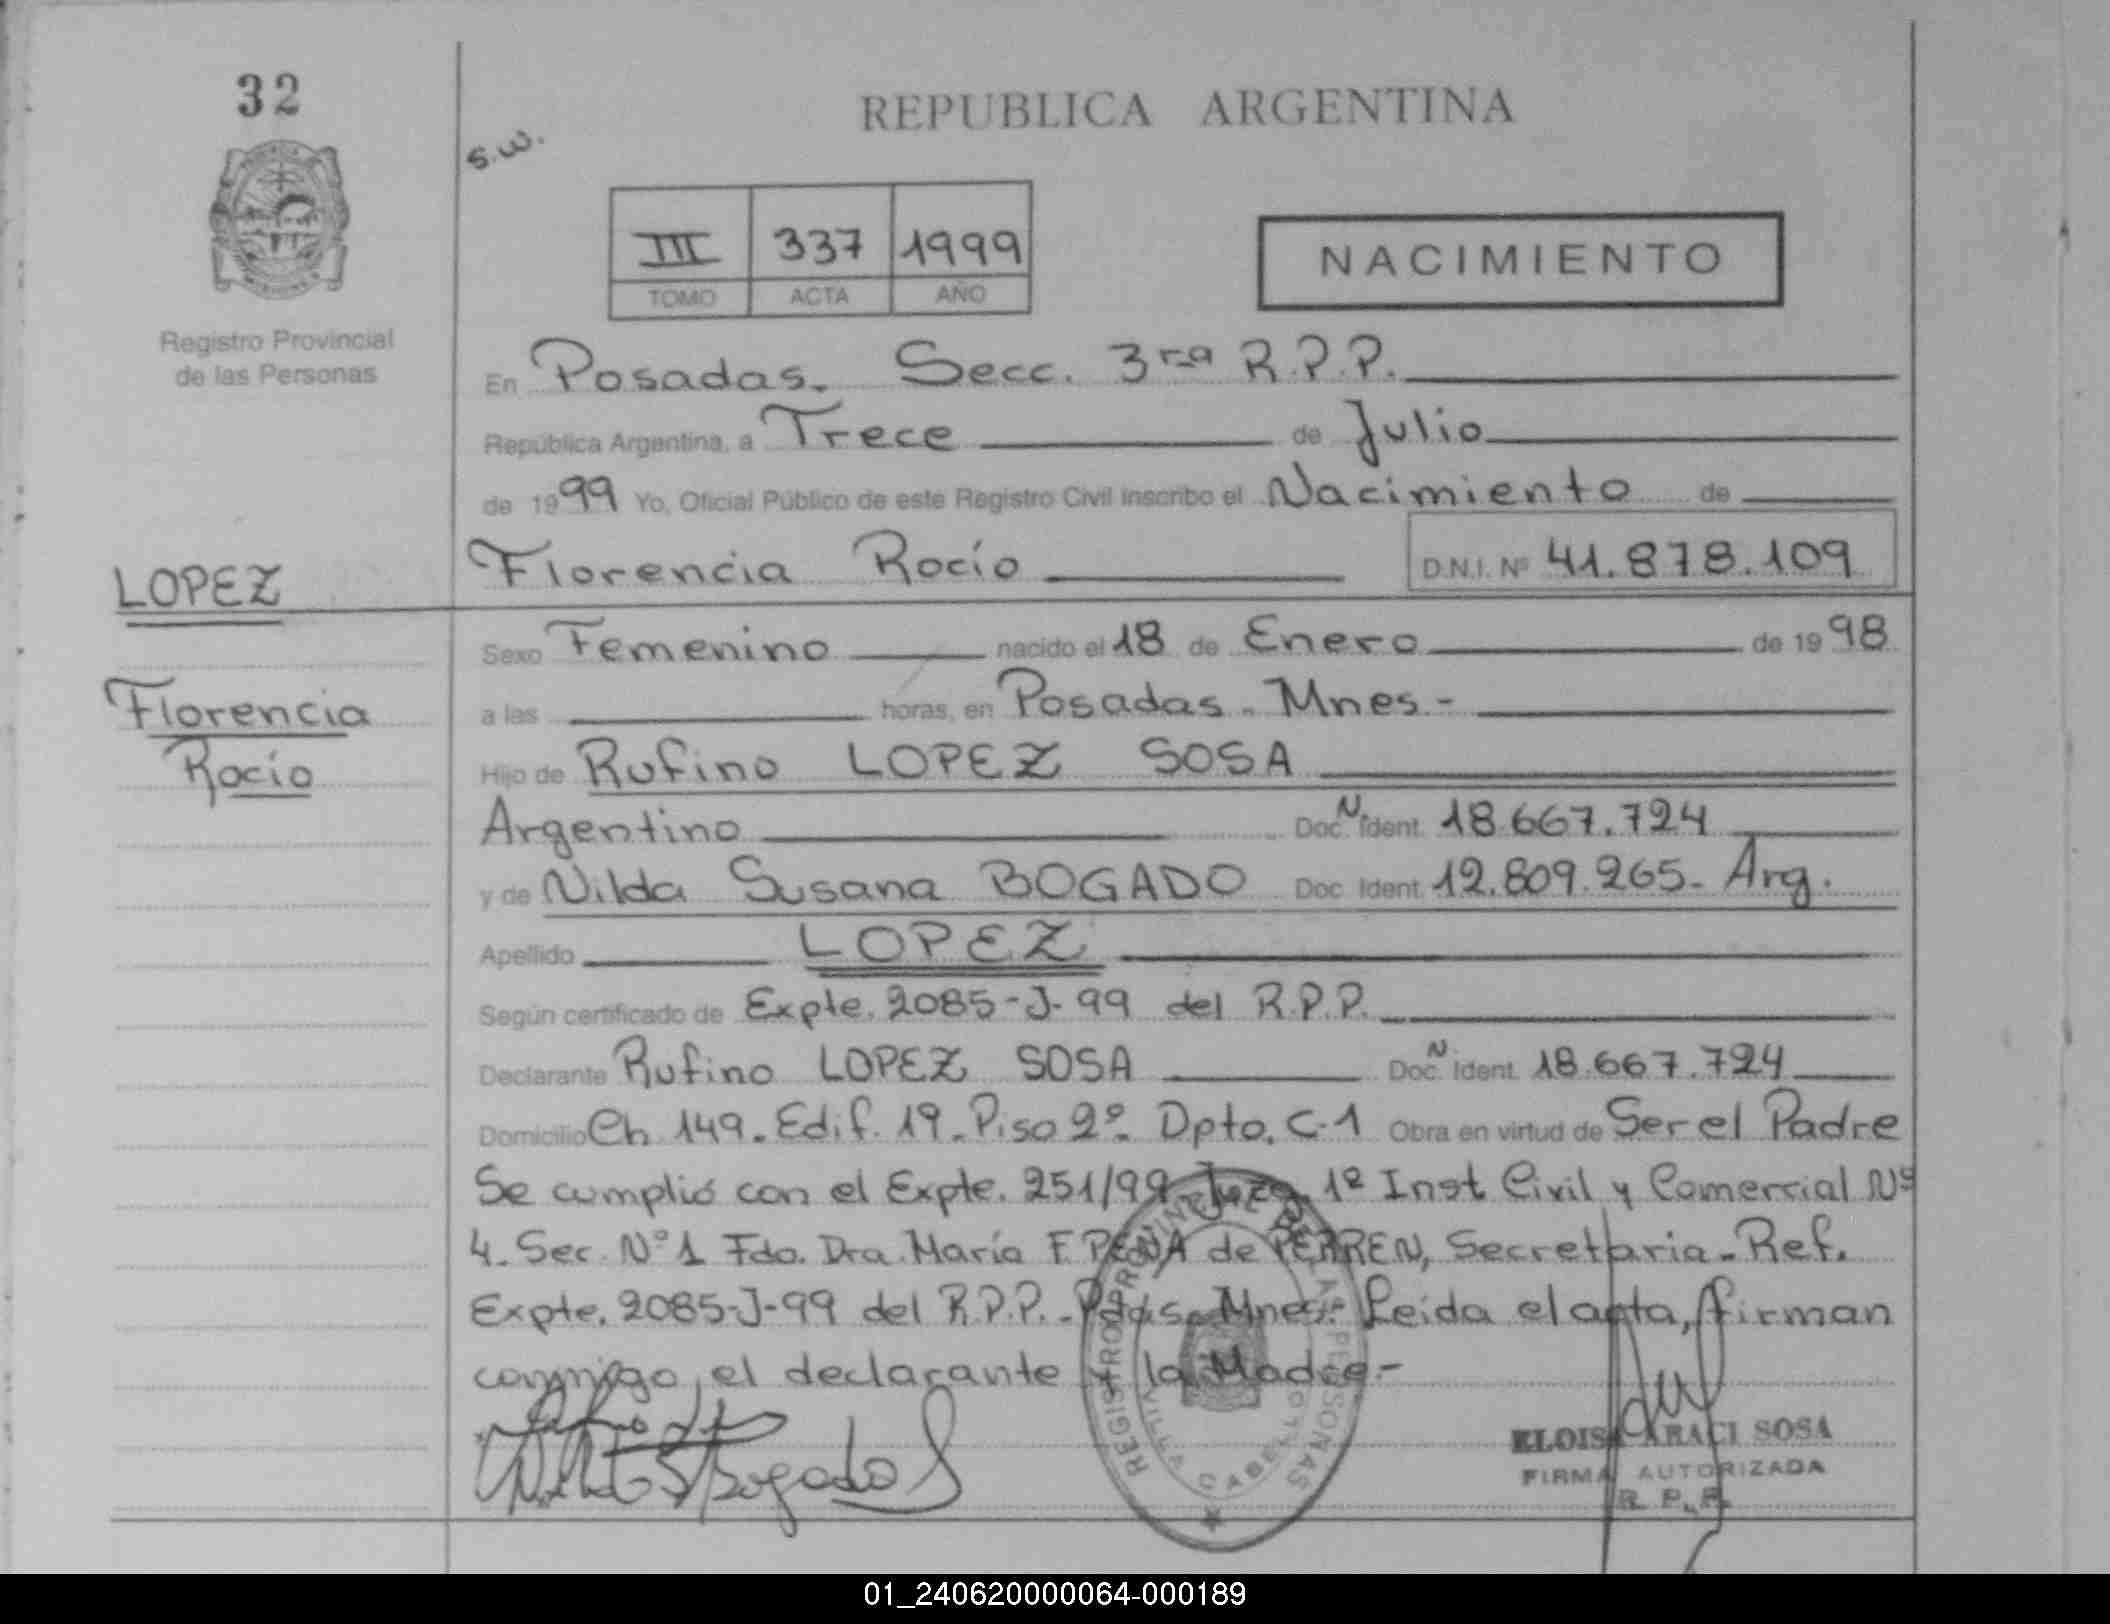 32
REPUBLICA ARGENTINA
S.W.
III 337 1999
TOMO ACTA AÑO
NACIMIENTO
Registro Provincial
de las Personas
En Posadas. Secc. 3ra R.P.P.
República Argentina, a Trece de Julio
de 1999 Yo, Oficial Público de este Registro Civil inscribo el Nacimiento de
LOPEZ
Florencia Rocío D.N.I. Nº 41.878.109
Sexo Femenino nacido el 18 de Enero de 1998
Florencia
Rocío
a las horas, en Posadas. Mnes.-
Hijo de Rufino LOPEZ SOSA
Argentino Doc. N. Ident. 18.667.724
y de Nilda Susana BOGADO Doc. Ident. 12.809.265. Arg.
Apellido LOPEZ
Según certificado de Expte. 2085-J-99 del R.P.P.
Declarante Rufino LOPEZ SOSA Doc. N Ident. 18.667.724
Domicilio Ch 149. Edif. 19. Piso 2º. Dpto. C-1 Obra en virtud de Ser el Padre
Se cumplió con el Expte. 251/99 Juzg. 1º Inst Civil y Comercial Nº
4. Sec. Nº 1 Fdo. Dra. María F. PEÑA de PERREN, Secretaria. Ref.
Expte. 2085-J-99 del R.P.P. - Pdas. Mnes.- Leida el acta, firman
conmigo, el declarante y la Madre.-
REGISTRO PROVINCIAL DE LAS PERSONAS
VILLA CABELLO
ELOISA ARACI SOSA
FIRMA AUTORIZADA
R. P. P.
01_240620000064-000189